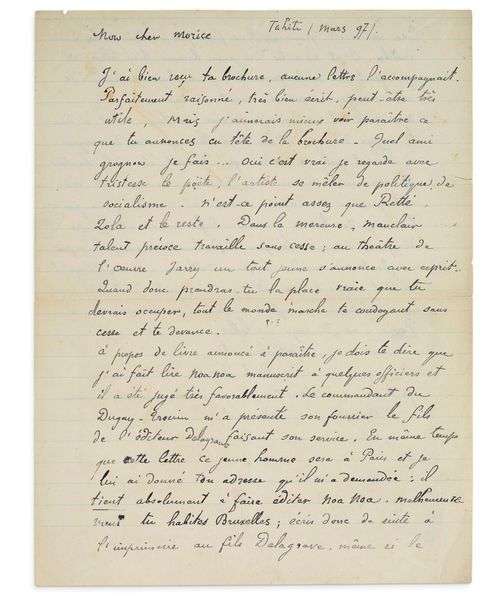 Tahiti (mars 97).
Mon cher Morice
J'ai bien reçu ta brochure, aucune lettre l'accompagnait.
Parfaitement raisonné, très bien écrit, peut-être très
utile, Mais j'aimerais mieux voir paraître ce
que tu annonces en tête de la brochure. Quel ami
grognon je fais... Oui c'est vrai je regarde avec
tristesse le poëte, l'artiste se mêler de politique, de
socialisme. n'est-ce point assez que Retté
Zola et le reste. Dans la mercure, mauclair
talent précoce travaille sans cesse ; au théâtre de
l'œuvre Jarry un tout jeune s'annonce avec esprit.
Quand donc prendras-tu la place vraie que tu
devrais occuper, tout le monde marche te coudoyant sans
cesse et te devance.
à propos de livre annoncé à paraître, je dois te dire que
j'ai fait lire Noa Noa manuscrit à quelques officiers et
il a été jugé très favorablement. Le commandant du
Duguay-Trouin m'a présenté son fourrier le fils
de l'éditeur Delagrave faisant son service. En même temps
que cette lettre ce jeune homme sera à Paris et je
lui ai donné ton adresse qu'il m'a demandée : il
tient absolument à faire éditer Noa Noa. malheureuse
ment tu habites Bruxelles ; écris donc de suite à
l'imprimerie au fils Delagrave, même si le